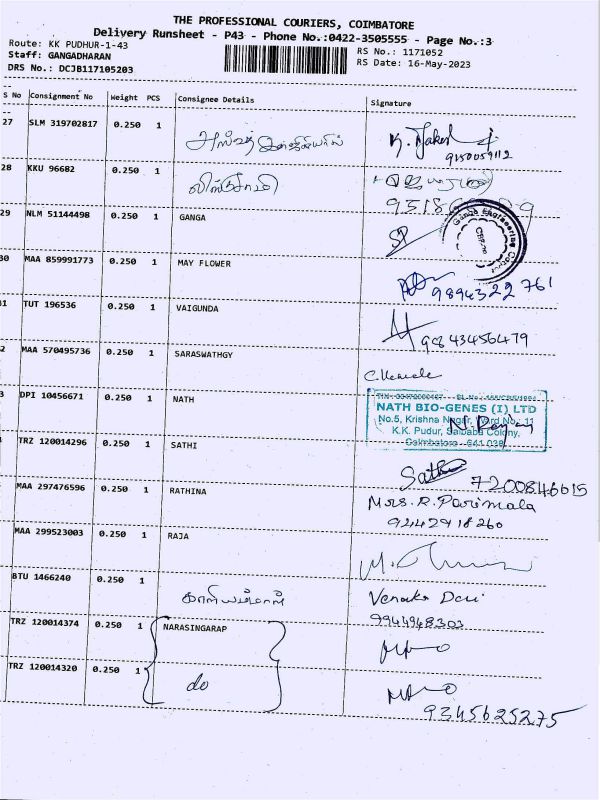 THE PROFESSIONAL COURIERS, COIMBATORE
Delivery Runsheet - P43 - Phone No.:0422-3505555 - Page No.:3
Route: KK PUDHUR-1-43
Staff: GANGADHARAN
DRS No.: DCJB117105203
RS No.: 1171052
RS Date: 16-May-2023
S No Consignment No Weight PCS Consignee Details Signature
27 SLM 319702817 0.250 1
9150059112
28 KKU 96682 0.250 1
29 NLM 51144498 0.250 1 GANGA
Ganga Engineering
30 MAA 859991773 0.250 1 MAY FLOWER
9894322761
31 TUT 196536 0.250 1 VAIGUNDA
9843456479
2 MAA 570495736 0.250 1 SARASWATHGY
3 DPI 10456671 0.250 1 NATH
NATH BIO-GENES (I) LTD
No.5, Krishna Nagar, Ward No. 11
K.K. Pudur, Saibaba Colony,
Coimbatore - 641 038
TRZ 120014296 0.250 1 SATHI
Sathi 7200846015
MAA 297476596 0.250 1 RATHINA
Mrs. R. Parimala
9442918260
MAA 299523003 0.250 1 RAJA
BTU 1466240 0.250 1
9944948303
TRZ 120014374 0.250 1 NARASINGARAP
TRZ 120014320 0.250 1 do
9345625275